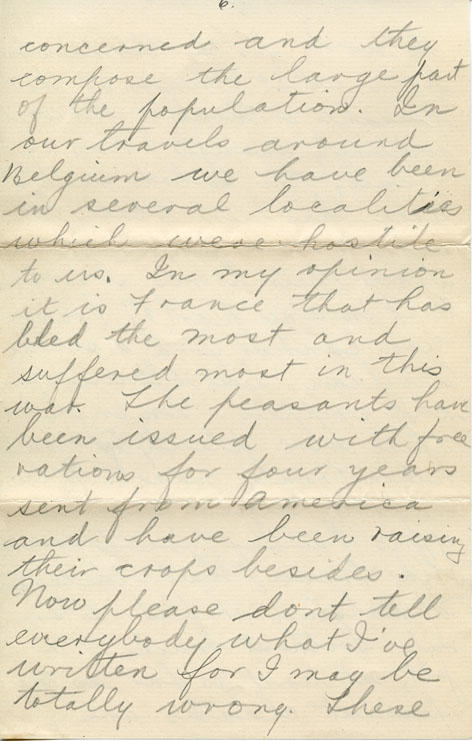 6.
concerned and they
compose the large part
of the population. In
our travels around
Belgium we have been
in several localities
which were hostile
to us. In my opinion
it is France that has
bled the most and
suffered most in this
war. The peasants have
been issued with free
rations for four years
sent from America
and have been raising
their crops besides.
Now please dont tell
everybody what I've
written for I may be
totally wrong. These